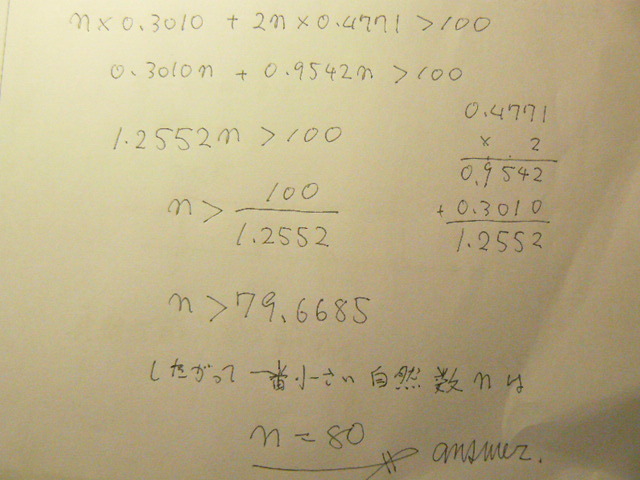 n × 0.3010 + 2n × 0.4771 > 100
0.3010n + 0.9542n > 100
1.2552n > 100
n > 100
1.2552
n > 79.6685
0.4771
× 2
0.9542
+ 0.3010
1.2552
したがって 一番小さい 自然数 n は
n = 80
answer.